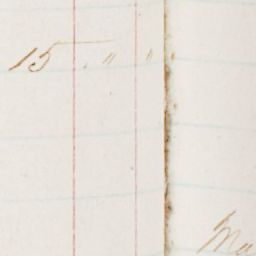 15 . " "
Ma